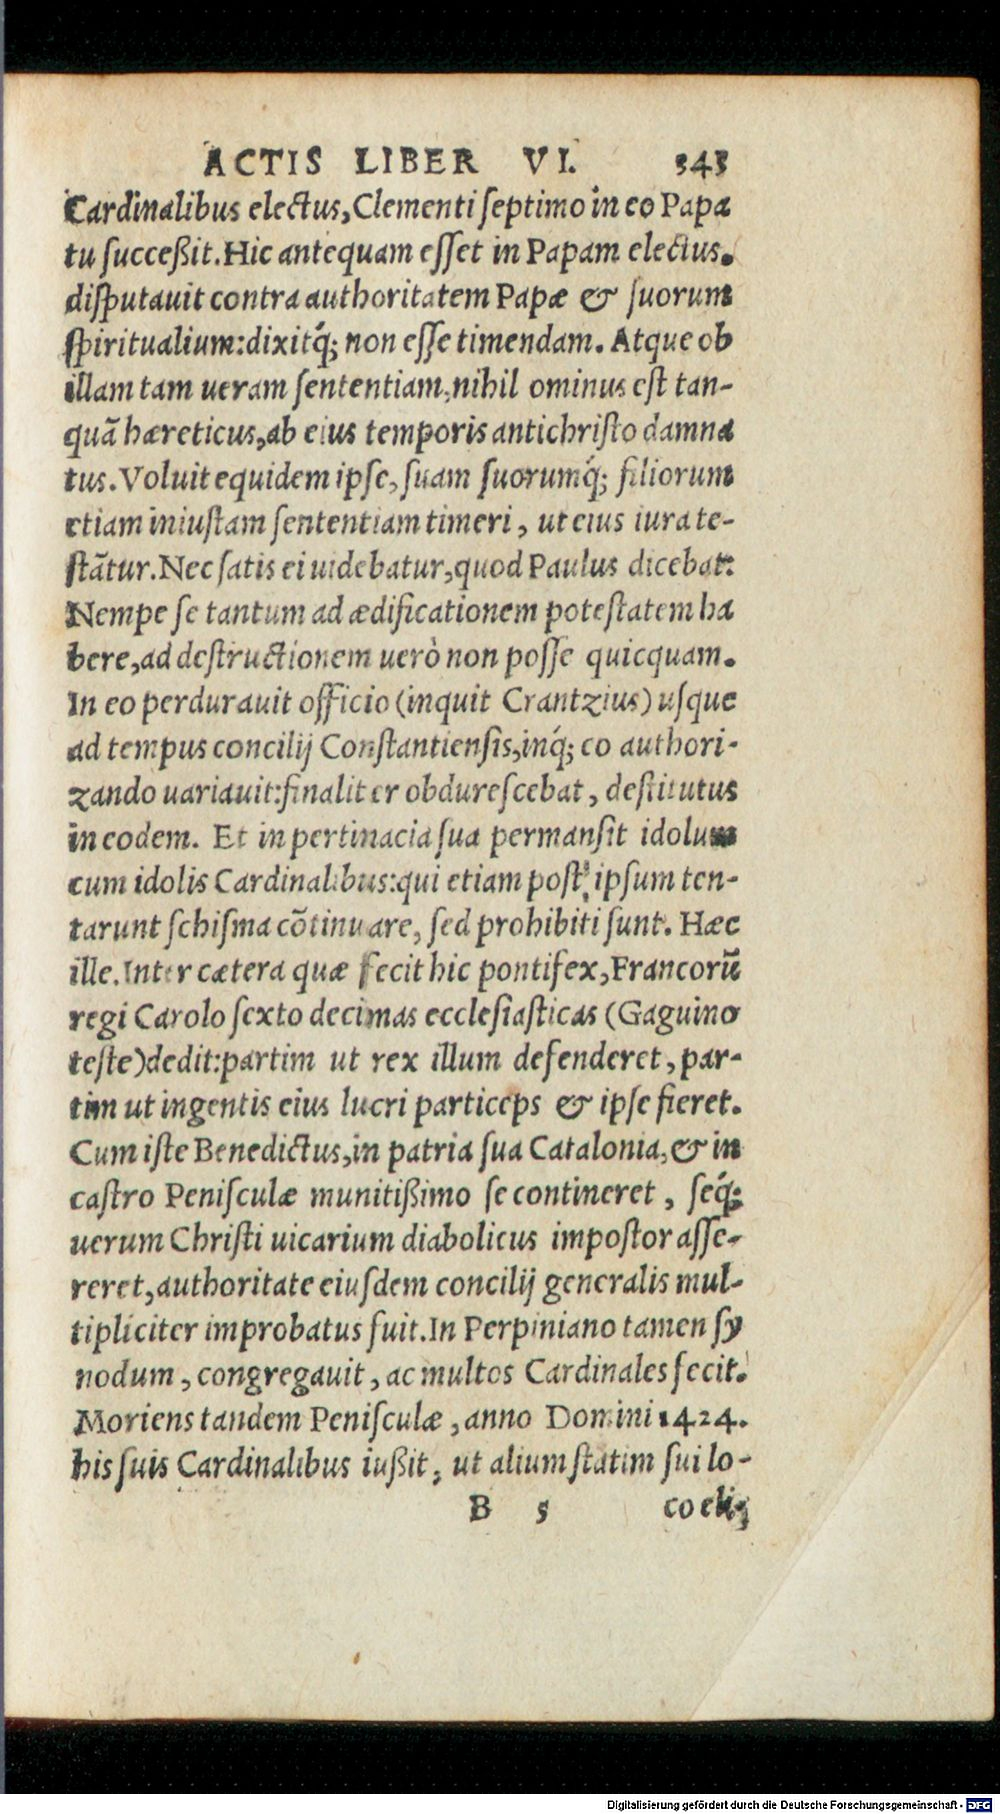 ACTIS LIBER VI. 343
Cardinalibus electus, Clementi septimo in eo Papa
tu succeßit. Hic antequam esset in Papam electus.
disputauit contra authoritatem Papæ & suorum
spiritualium: dixitq́; non esse timendam. Atque ob
illam tam ueram sententiam, nihil ominus est tan-
quã hæreticus, ab eius temporis antichristo damna
tus. Voluit equidem ipse, suam suorumq́; filiorum
etiam iniustam sententiam timeri, ut eius iura te-
stãtur. Nec satis ei uidebatur, quod Paulus dicebat:
Nempe se tantum ad ædificationem potestatem ha
bere, ad destructionem uerò non posse quicquam.
In eo perdurauit officio (inquit Crantzius) usque
ad tempus concilij Constantiensis, inq́; eo authori-
zando uariauit: finaliter obdurescebat, destitutus
in eodem. Et in pertinacia sua permansit idolum
cum idolis Cardinalibus: qui etiam post ipsum ten-
tarunt schisma cõtinuare, sed prohibiti sunt. Hæc
ille. Inter cætera quæ fecit hic pontifex, Francorũ
regi Carolo sexto decimas ecclesiasticas (Gaguino
teste) dedit: partim ut rex illum defenderet, par-
tim ut ingentis eius lucri particeps & ipse fieret.
Cum iste Benedictus, in patria sua Catalonia, & in
castro Penisculæ munitißimo se contineret, seq́;
uerum Christi uicarium diabolicus impostor asse-
reret, authoritate eiusdem concilij generalis mul-
tipliciter improbatus fuit. In Perpiniano tamen sy
nodum, congregauit, ac multos Cardinales fecit.
Moriens tandem Penisculæ, anno Domini 1424.
his suis Cardinalibus iußit, ut alium statim sui lo-
B 5 co eli-
Digitalisierung gefördert durch die Deutsche Forschungsgemeinschaft - DFG